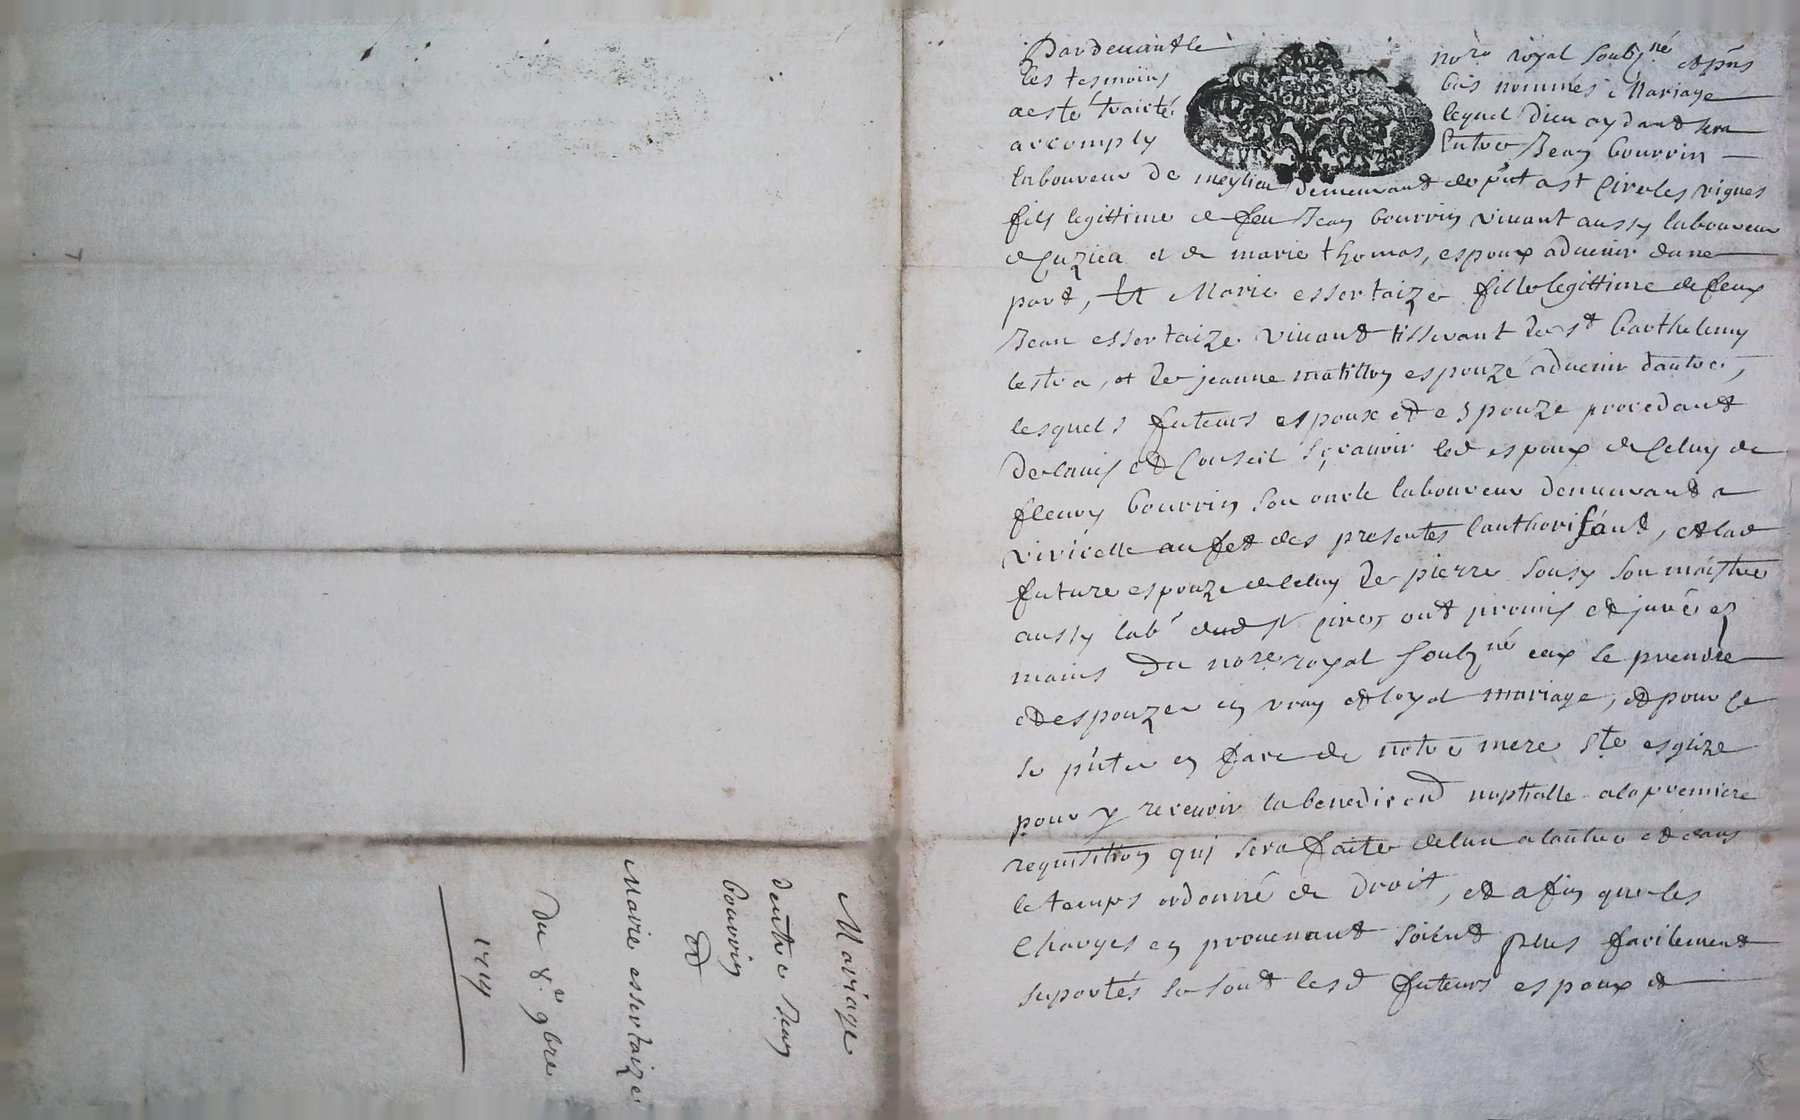 Mariage
dentre Jean
bourrin
et
Marie essertaize
Du 8e 9bre
Pardevant le nore royal soubzné et pns
les tesmoins bas nommés Mariage
a esté traicté lequel dieu aydant sera
accomply Entre Jean bourrin
laboureur de meylieu demeurant de pnt a st Cire les vignes
fils legittime de feu Jean bourrin vivant aussy laboureur
de Cuzieu et de marie thomas, espoux advenir dune
part, Et Marie essertaize fille legittime de feux
Jean essertaize vivant tisserant de st barthelemy
lestra, et de jeanne matillon espouzé advenir dautre,
lesquels futeurs espoux et espouze procedant
de lavis et Conseil sçcavoir led espoux de Celuy de
fleury bourrin son oncle laboureur demeurant a
viricelle au fet des presentes lauthorisant, et lad
future espouze de Celuy de pierre sousy son maistre
aussy labr dud st Cire, ont promis et juré es
mains du nore royal soubzné eux se prendre
et espouzer en vray et loyal mariage, et pour Ce
se pnter en face de notre mere ste esglize
pour y recevoir la benediction nuptialle a la premiere
requisition qui sera faite de lun a lautre et dans
le temps ordonné de droit, et afin que les
Charges en provenant soient plus facilement
suportés se sont lesd futeurs espoux et